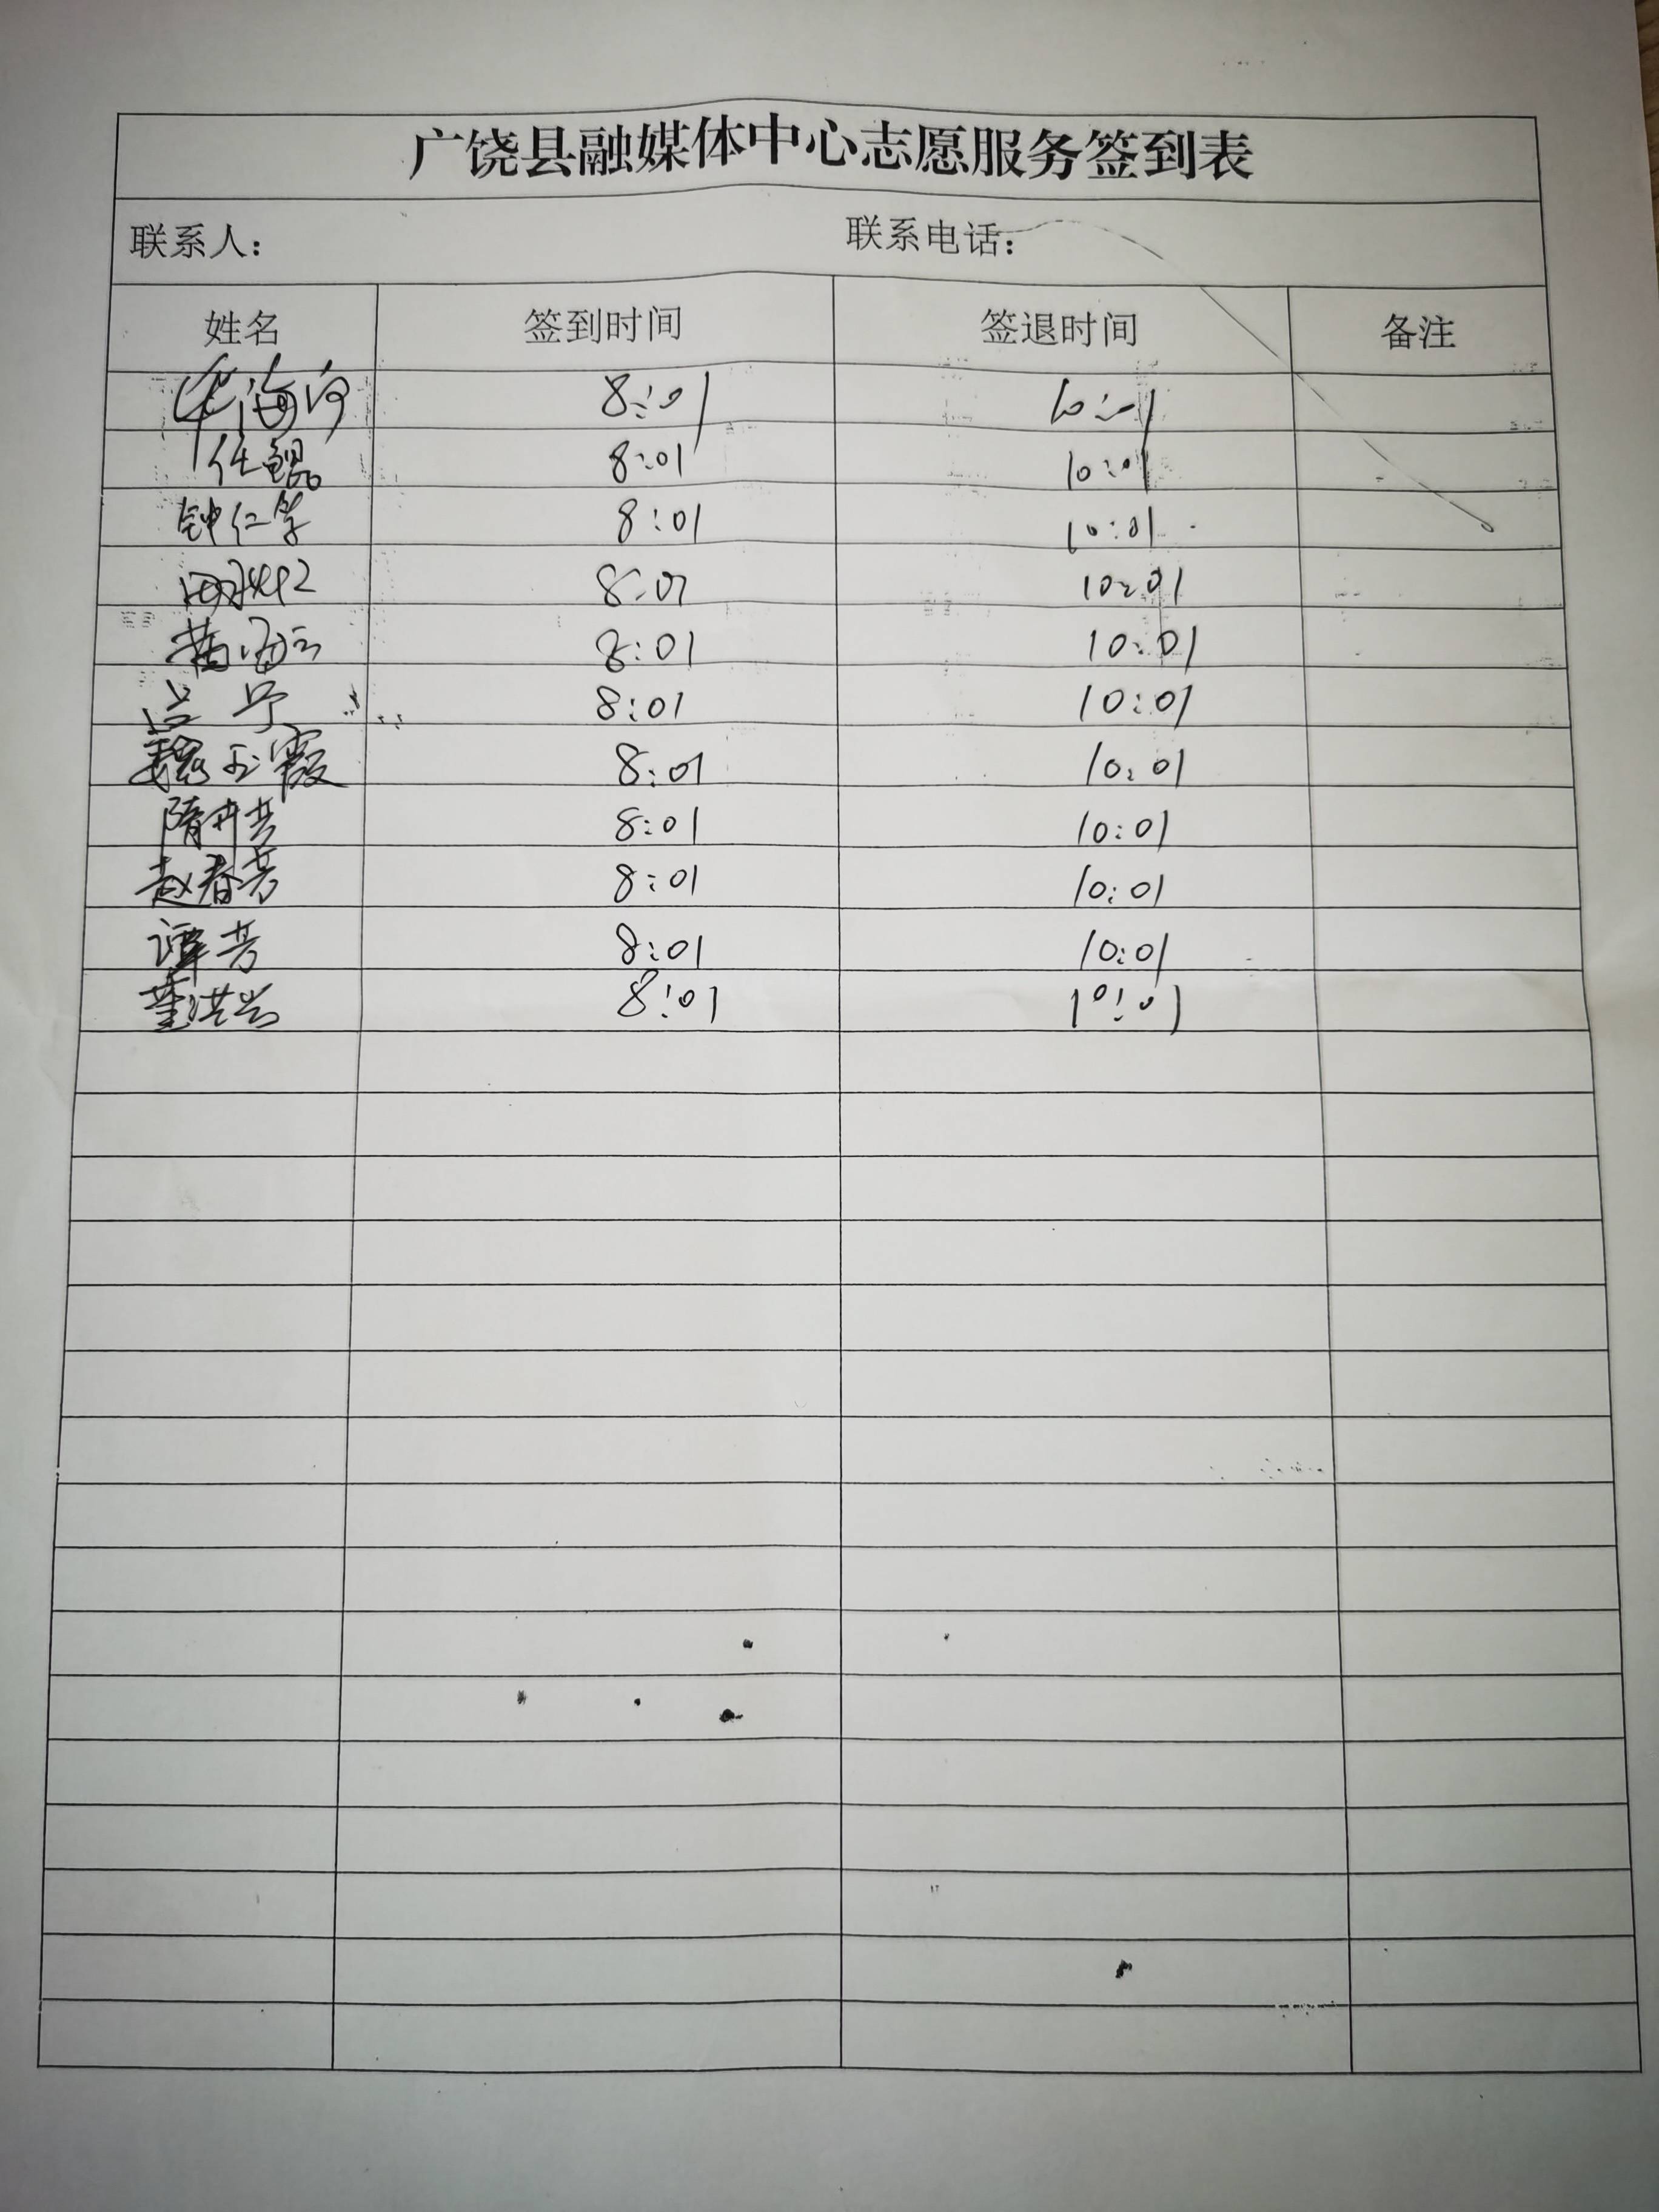 广饶县融媒体中心志愿服务签到表
联系人： 联系电话：
姓名 签到时间 签退时间 备注
8:01 10:01
任鲲 8:01 10:01
钟仁学 8:01 10:01
8:01 10:01
8:01 10:01
吕宁 8:01 10:01
魏玉霞 8:01 10:01
隋丹芸 8:01 10:01
赵春芳 8:01 10:01
谭芳 8:01 10:01
董洪兴 8:01 10:01